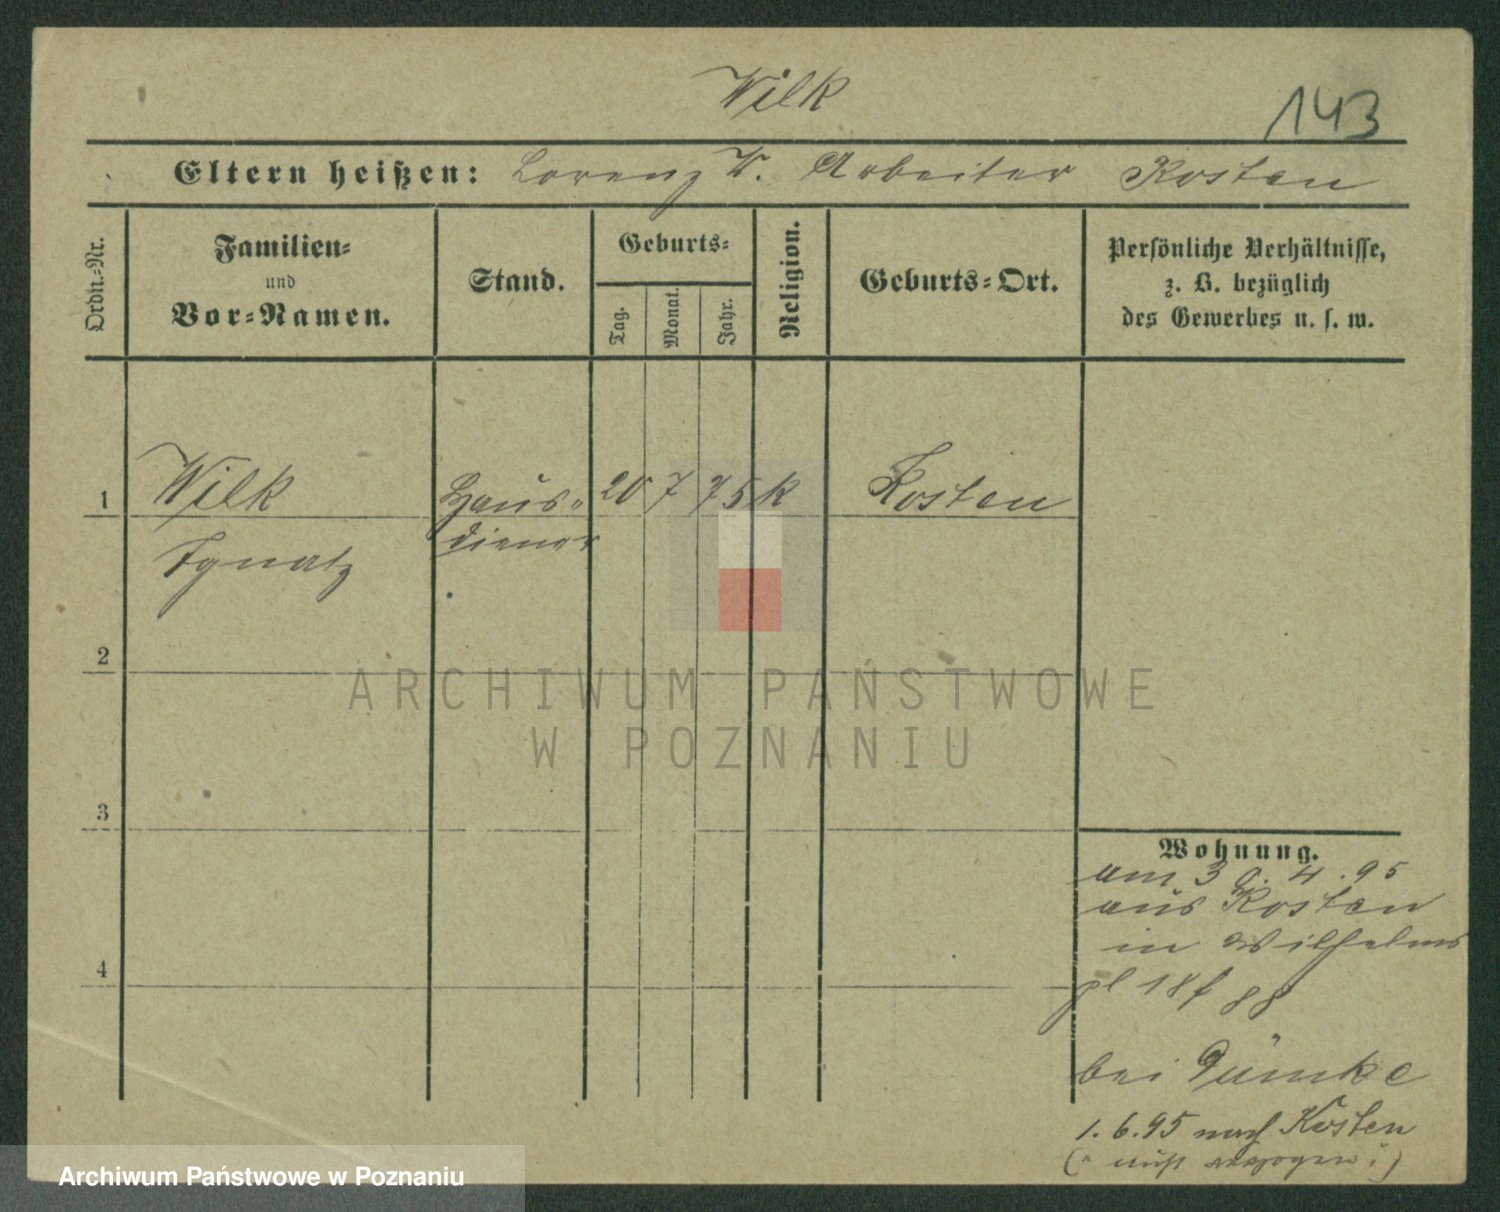 Wilk
143
Eltern heißen: Lorenz W. Arbeiter Kosten
Ordn.-Nr.
Familien-
und
Vor-Namen.
Stand.
Geburts-
Tag.
Monat.
Jahr.
Religion.
Geburts-Ort.
Persönliche Verhältnisse,
z. B. bezüglich
des Gewerbes u. s. w.
1 Wilk Haus- 20 7 75 k Kosten
Ignatz diener
2
ARCHIWUM PAŃSTWOWE
W POZNANIU
3
Wohnung.
am 30. 4. 95
aus Kosten
in Wilhelms
pl 18
4
bei Dümke
1. 6. 95 nach Kosten
Archiwum Państwowe w Poznaniu